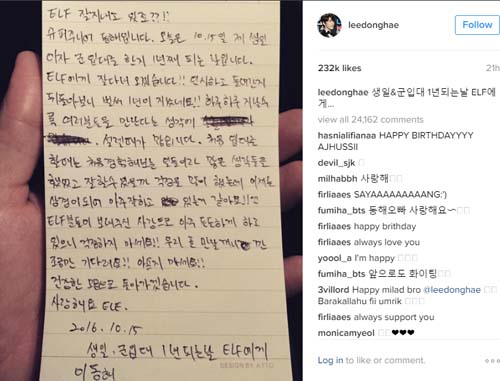 ELF 잘지내고 있죠??!!
슈퍼주니어 동해입니다. 오늘은 10.15일 제 생일
이자 군입대를 한지 1년째 되는 날입니다.
ELF에게 잘 다녀 오겠습니다!! 인사하고 들어간지
뒤돌아보니 벌써 1년이 지났네요!! 하루하루 지날수
록 여러분들을 만난다는 생각에
설렘되가 많습니다. 처음 입대
할때는 처음 경험해보는 모든
했었고 잘할수 있을까 걱정도 많이 했는데 이제는
상경이되어 아주잘하고 있는거 같아요!!
ELF분들이 보내주신 사랑으로 아주 든든하게 하고
있으니 걱정하지 마세요!! 우리 곧 만날
조금만 기다려요!! 아프지 마세요!!
건강한 모습으로 돌아가겠습니다.
사랑해요 ELF.
2016. 10. 15
생일, 군입대 1년 되는날 ELF에게
이동해
DESIGN BY ATTO
leedonghae
Follow
232k likes
21h
leedonghae 생일&군입대 1년되는날 ELF에
게...
view all 24,162 comments
hasnialifianaa HAPPY BIRTHDAYYYY
AJHUSSII
devil_sjk
milhabbh 사랑해
firliaaes SAYAAAAAAAAANG:')
fumiha_bts 동해오빠 사랑해요~
firliaaes happy birthday
firliaaes always love you
yoool_a I'm happy
fumiha_bts 앞으로도 화이팅
3villord Happy milad bro @leedonghae
Barakallahu fii umrik
firliaaes always support you
monicamyeol ❤❤❤
Log in to like or comment.